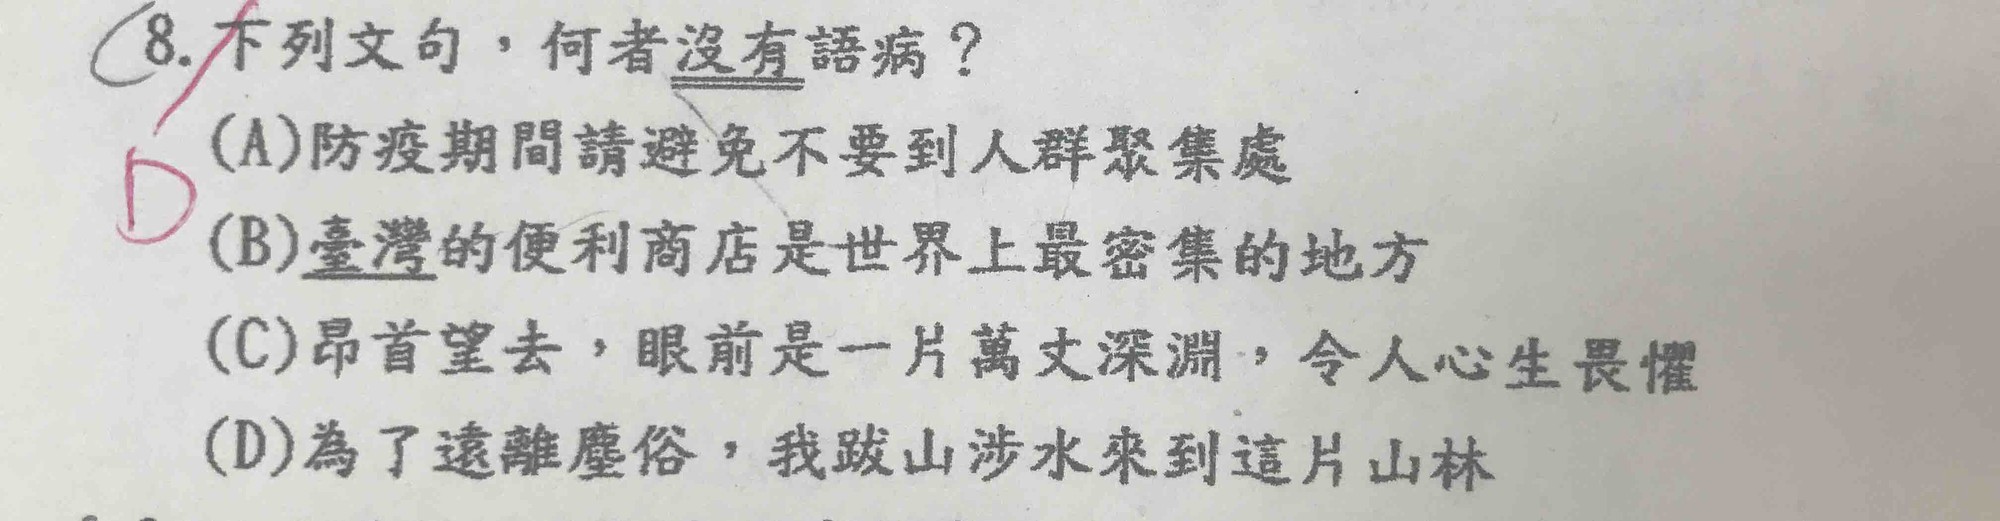 C8.下列文句，何者沒有語病？
D
(A)防疫期間請避免不要到人群聚集處
(B)臺灣的便利商店是世界上最密集的地方
(C)昂首望去，眼前是一片萬丈深淵，令人心生畏懼
(D)為了遠離塵俗，我跋山涉水來到這片山林